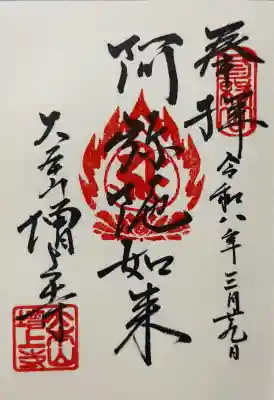 奉拝
令和八年三月廿九日
阿弥陀如来
大本山増上寺
大本山
増上寺